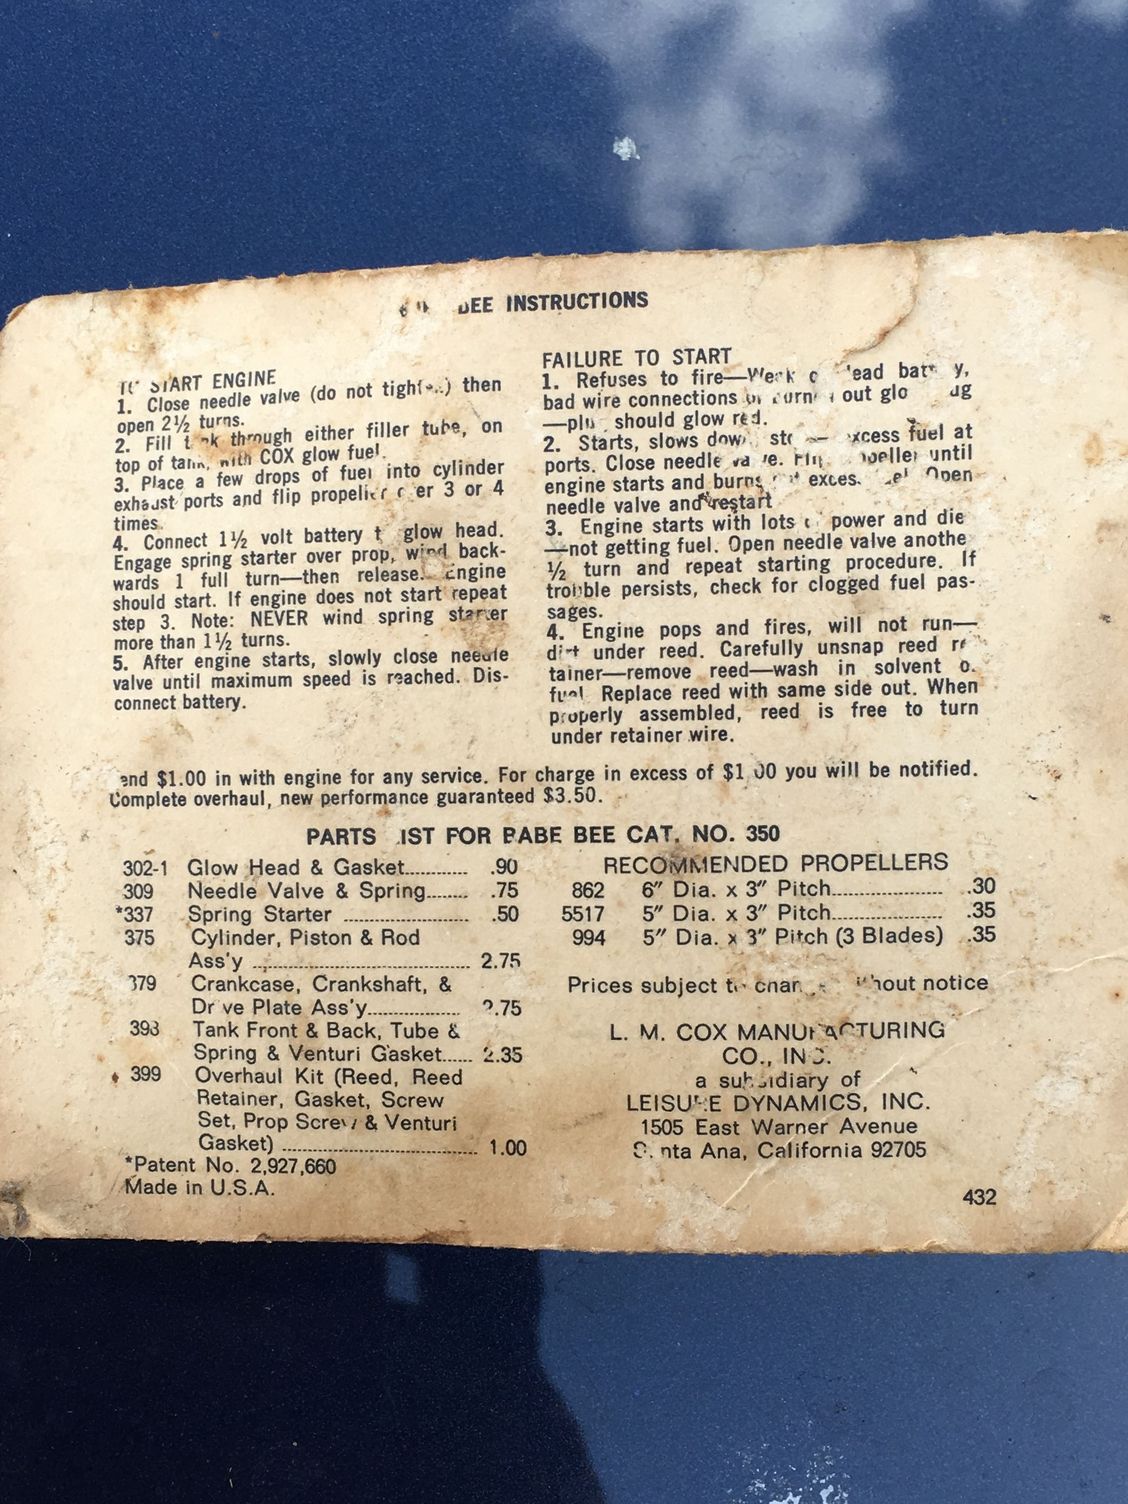 BEE INSTRUCTIONS
TO START ENGINE
1. Close needle valve (do not tighten) then
open 2½ turns.
2. Fill tank through either filler tube, on
top of tank, with COX glow fuel.
3. Place a few drops of fuel into cylinder
exhaust ports and flip propeller over 3 or 4
times.
4. Connect 1½ volt battery to glow head.
Engage spring starter over prop, wind back-
wards 1 full turn—then release. Engine
should start. If engine does not start repeat
step 3. Note: NEVER wind spring starter
more than 1½ turns.
5. After engine starts, slowly close needle
valve until maximum speed is reached. Dis-
connect battery.
FAILURE TO START
1. Refuses to fire—Weak or dead battery,
bad wire connections or burned out glow plug
—plug should glow red.
2. Starts, slows down, stops— excess fuel at
ports. Close needle valve. Flip propeller until
engine starts and burns out excess fuel. Open
needle valve and restart
3. Engine starts with lots of power and die
—not getting fuel. Open needle valve anothe
½ turn and repeat starting procedure. If
trouble persists, check for clogged fuel pas-
sages.
4. Engine pops and fires, will not run—
dirt under reed. Carefully unsnap reed re-
tainer—remove reed—wash in solvent or
fuel. Replace reed with same side out. When
properly assembled, reed is free to turn
under retainer wire.
end $1.00 in with engine for any service. For charge in excess of $1.00 you will be notified.
Complete overhaul, new performance guaranteed $3.50.
PARTS LIST FOR BABE BEE CAT. NO. 350
302-1 Glow Head & Gasket............ .90
309 Needle Valve & Spring........ .75
*337 Spring Starter ........................ .50
375 Cylinder, Piston & Rod
Ass'y .......................................... 2.75
379 Crankcase, Crankshaft, &
Drive Plate Ass'y.................. 2.75
398 Tank Front & Back, Tube &
Spring & Venturi Gasket...... 2.35
399 Overhaul Kit (Reed, Reed
Retainer, Gasket, Screw
Set, Prop Screw & Venturi
Gasket) ..................................... 1.00
*Patent No. 2,927,660
Made in U.S.A.
RECOMMENDED PROPELLERS
862 6" Dia. x 3" Pitch...................... .30
5517 5" Dia. x 3" Pitch...................... .35
994 5" Dia. x 3" Pitch (3 Blades) .35
Prices subject to change without notice
L. M. COX MANUFACTURING
CO., INC.
a subsidiary of
LEISURE DYNAMICS, INC.
1505 East Warner Avenue
Santa Ana, California 92705
432